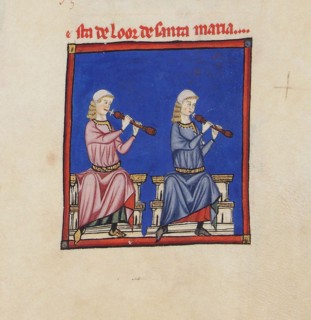 sta de Loor de santa maria....